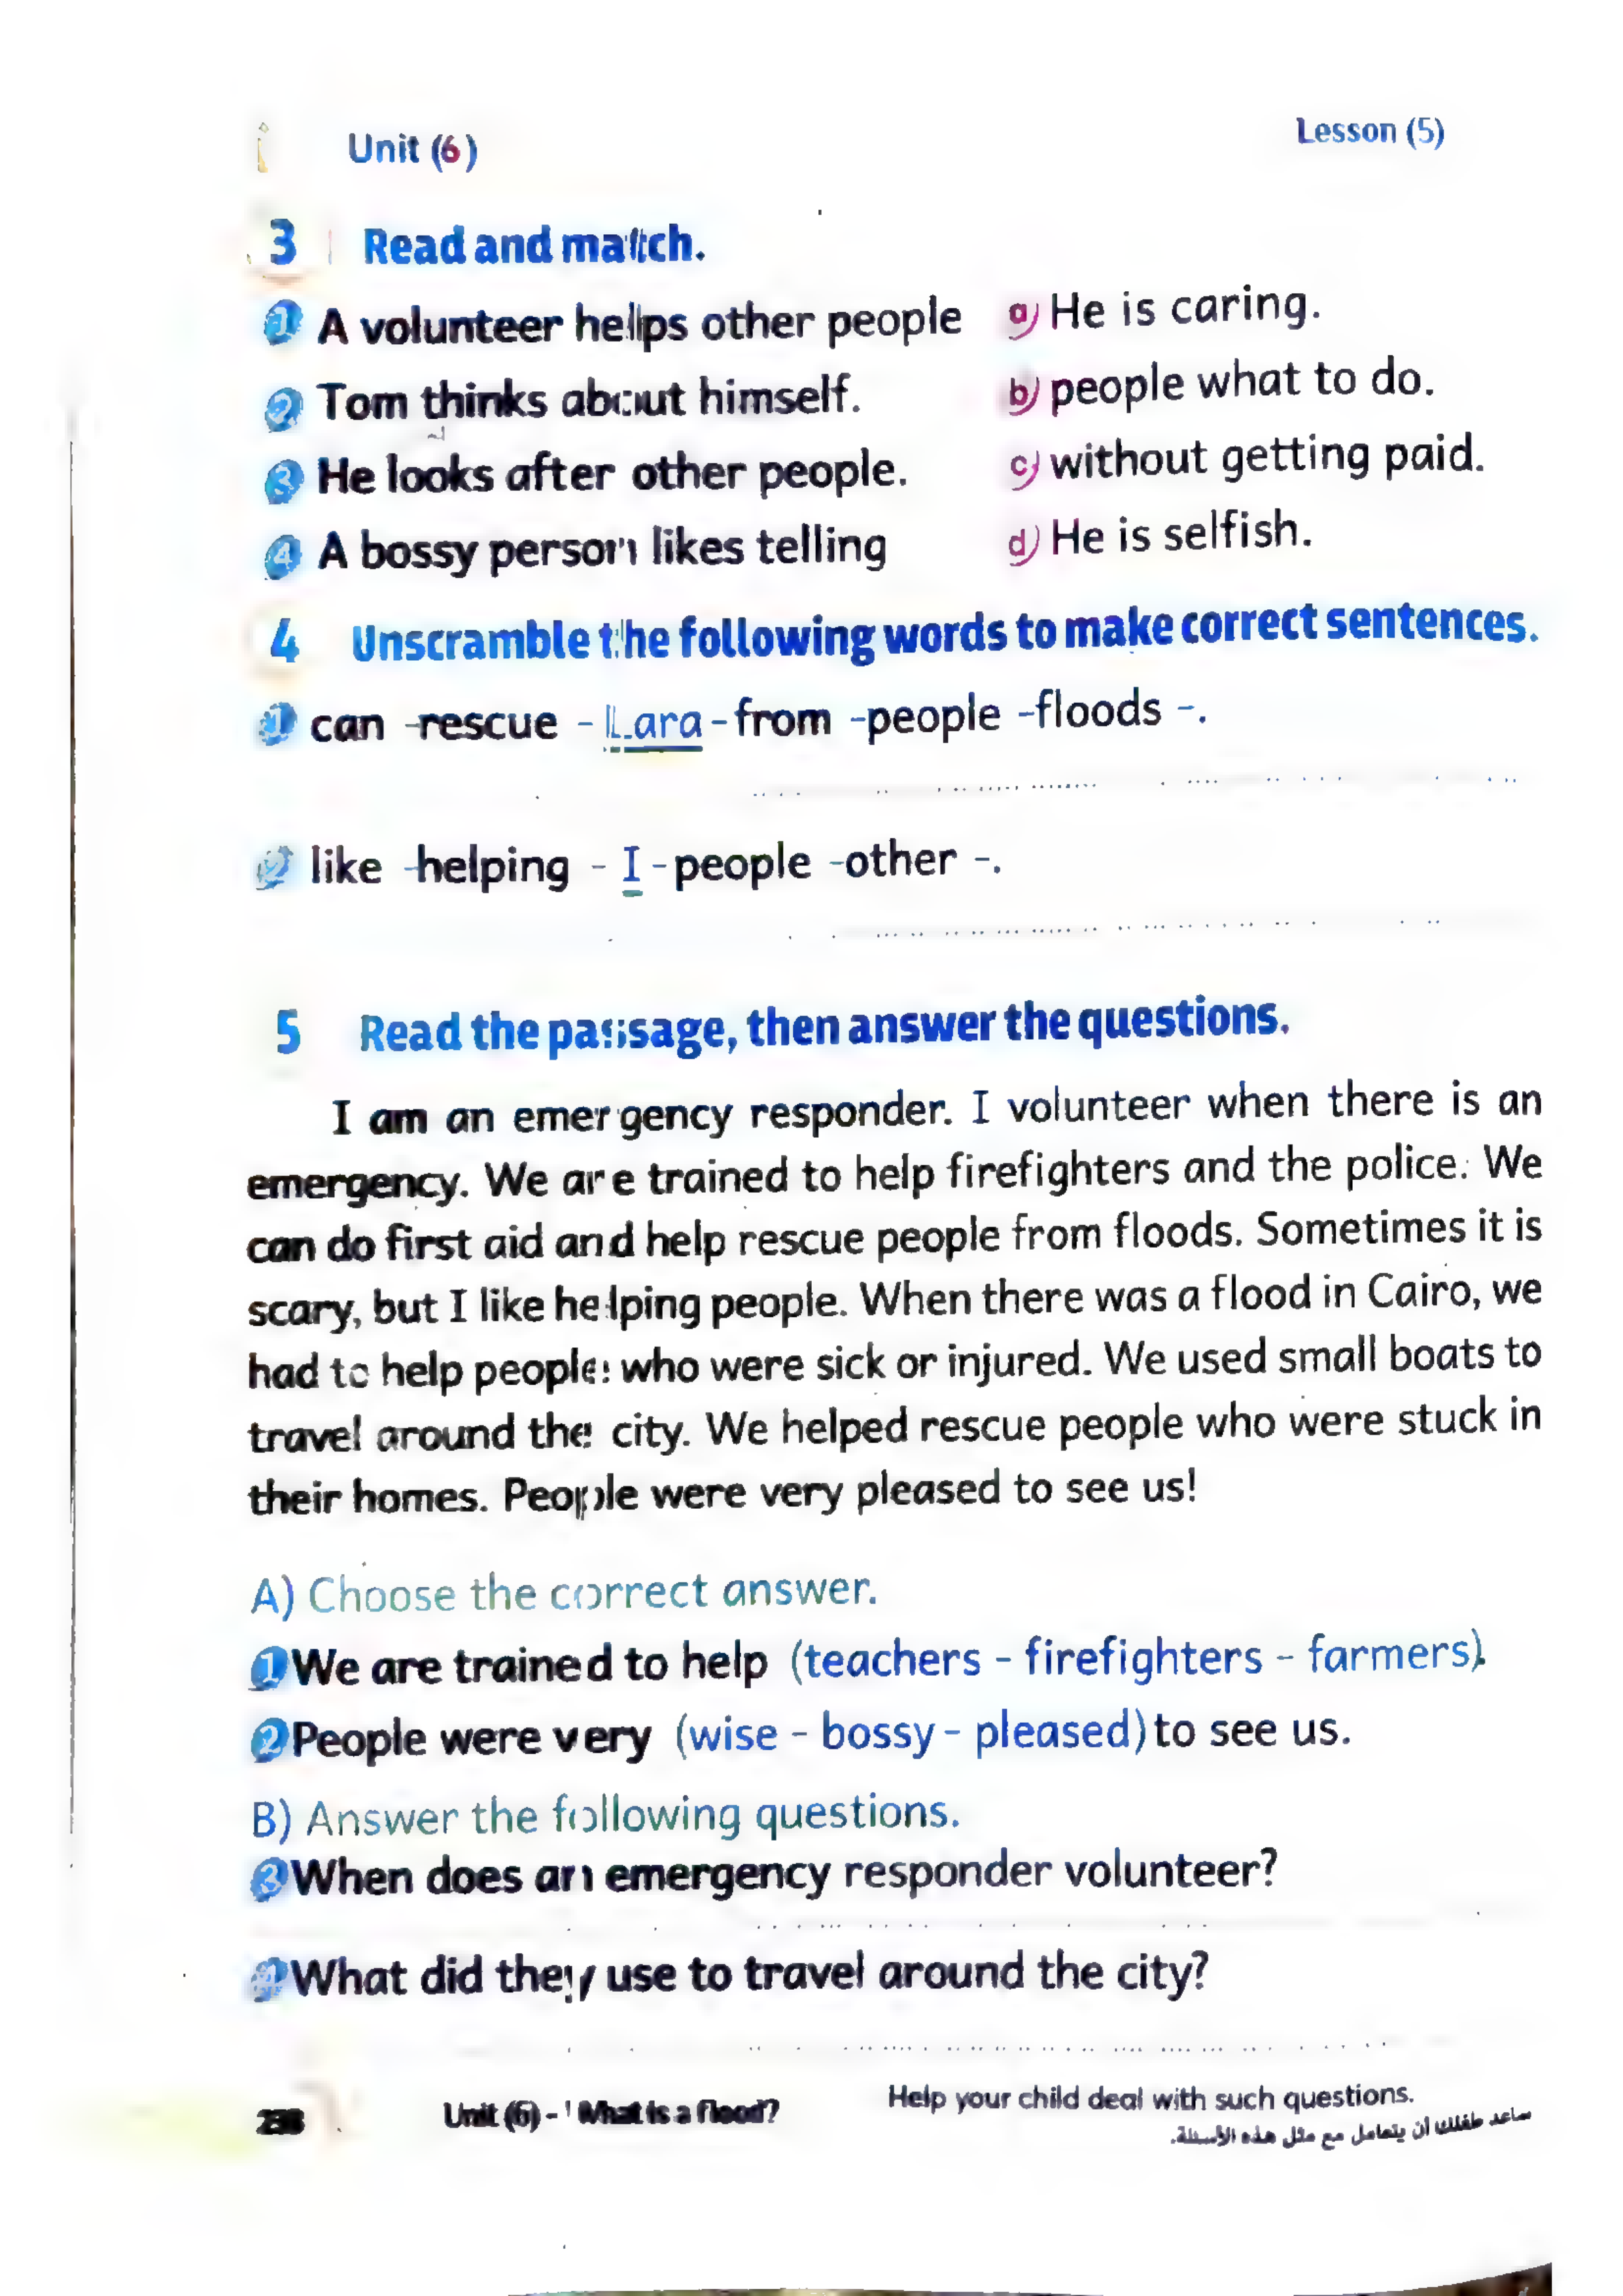 Unit (6)
Lesson (5)
3 Read and match.
1 A volunteer helps other people
a) He is caring.
2 Tom thinks about himself.
b) people what to do.
3 He looks after other people.
c) without getting paid.
4 A bossy person likes telling
d) He is selfish.
4 Unscramble the following words to make correct sentences.
1 can - rescue - Lara - from - people - floods - .
2 like - helping - I - people - other - .
5 Read the passage, then answer the questions.
I am an emergency responder. I volunteer when there is an
emergency. We are trained to help firefighters and the police. We
can do first aid and help rescue people from floods. Sometimes it is
scary, but I like helping people. When there was a flood in Cairo, we
had to help people who were sick or injured. We used small boats to
travel around the city. We helped rescue people who were stuck in
their homes. People were very pleased to see us!
A) Choose the correct answer.
1 We are trained to help (teachers - firefighters - farmers).
2 People were very (wise - bossy - pleased) to see us.
B) Answer the following questions.
3 When does an emergency responder volunteer?
4 What did they use to travel around the city?
Unit (6) - What is a flood?
Help your child deal with such questions.
ساعد طفلك أن يتعامل مع مثل هذه الأسئلة.